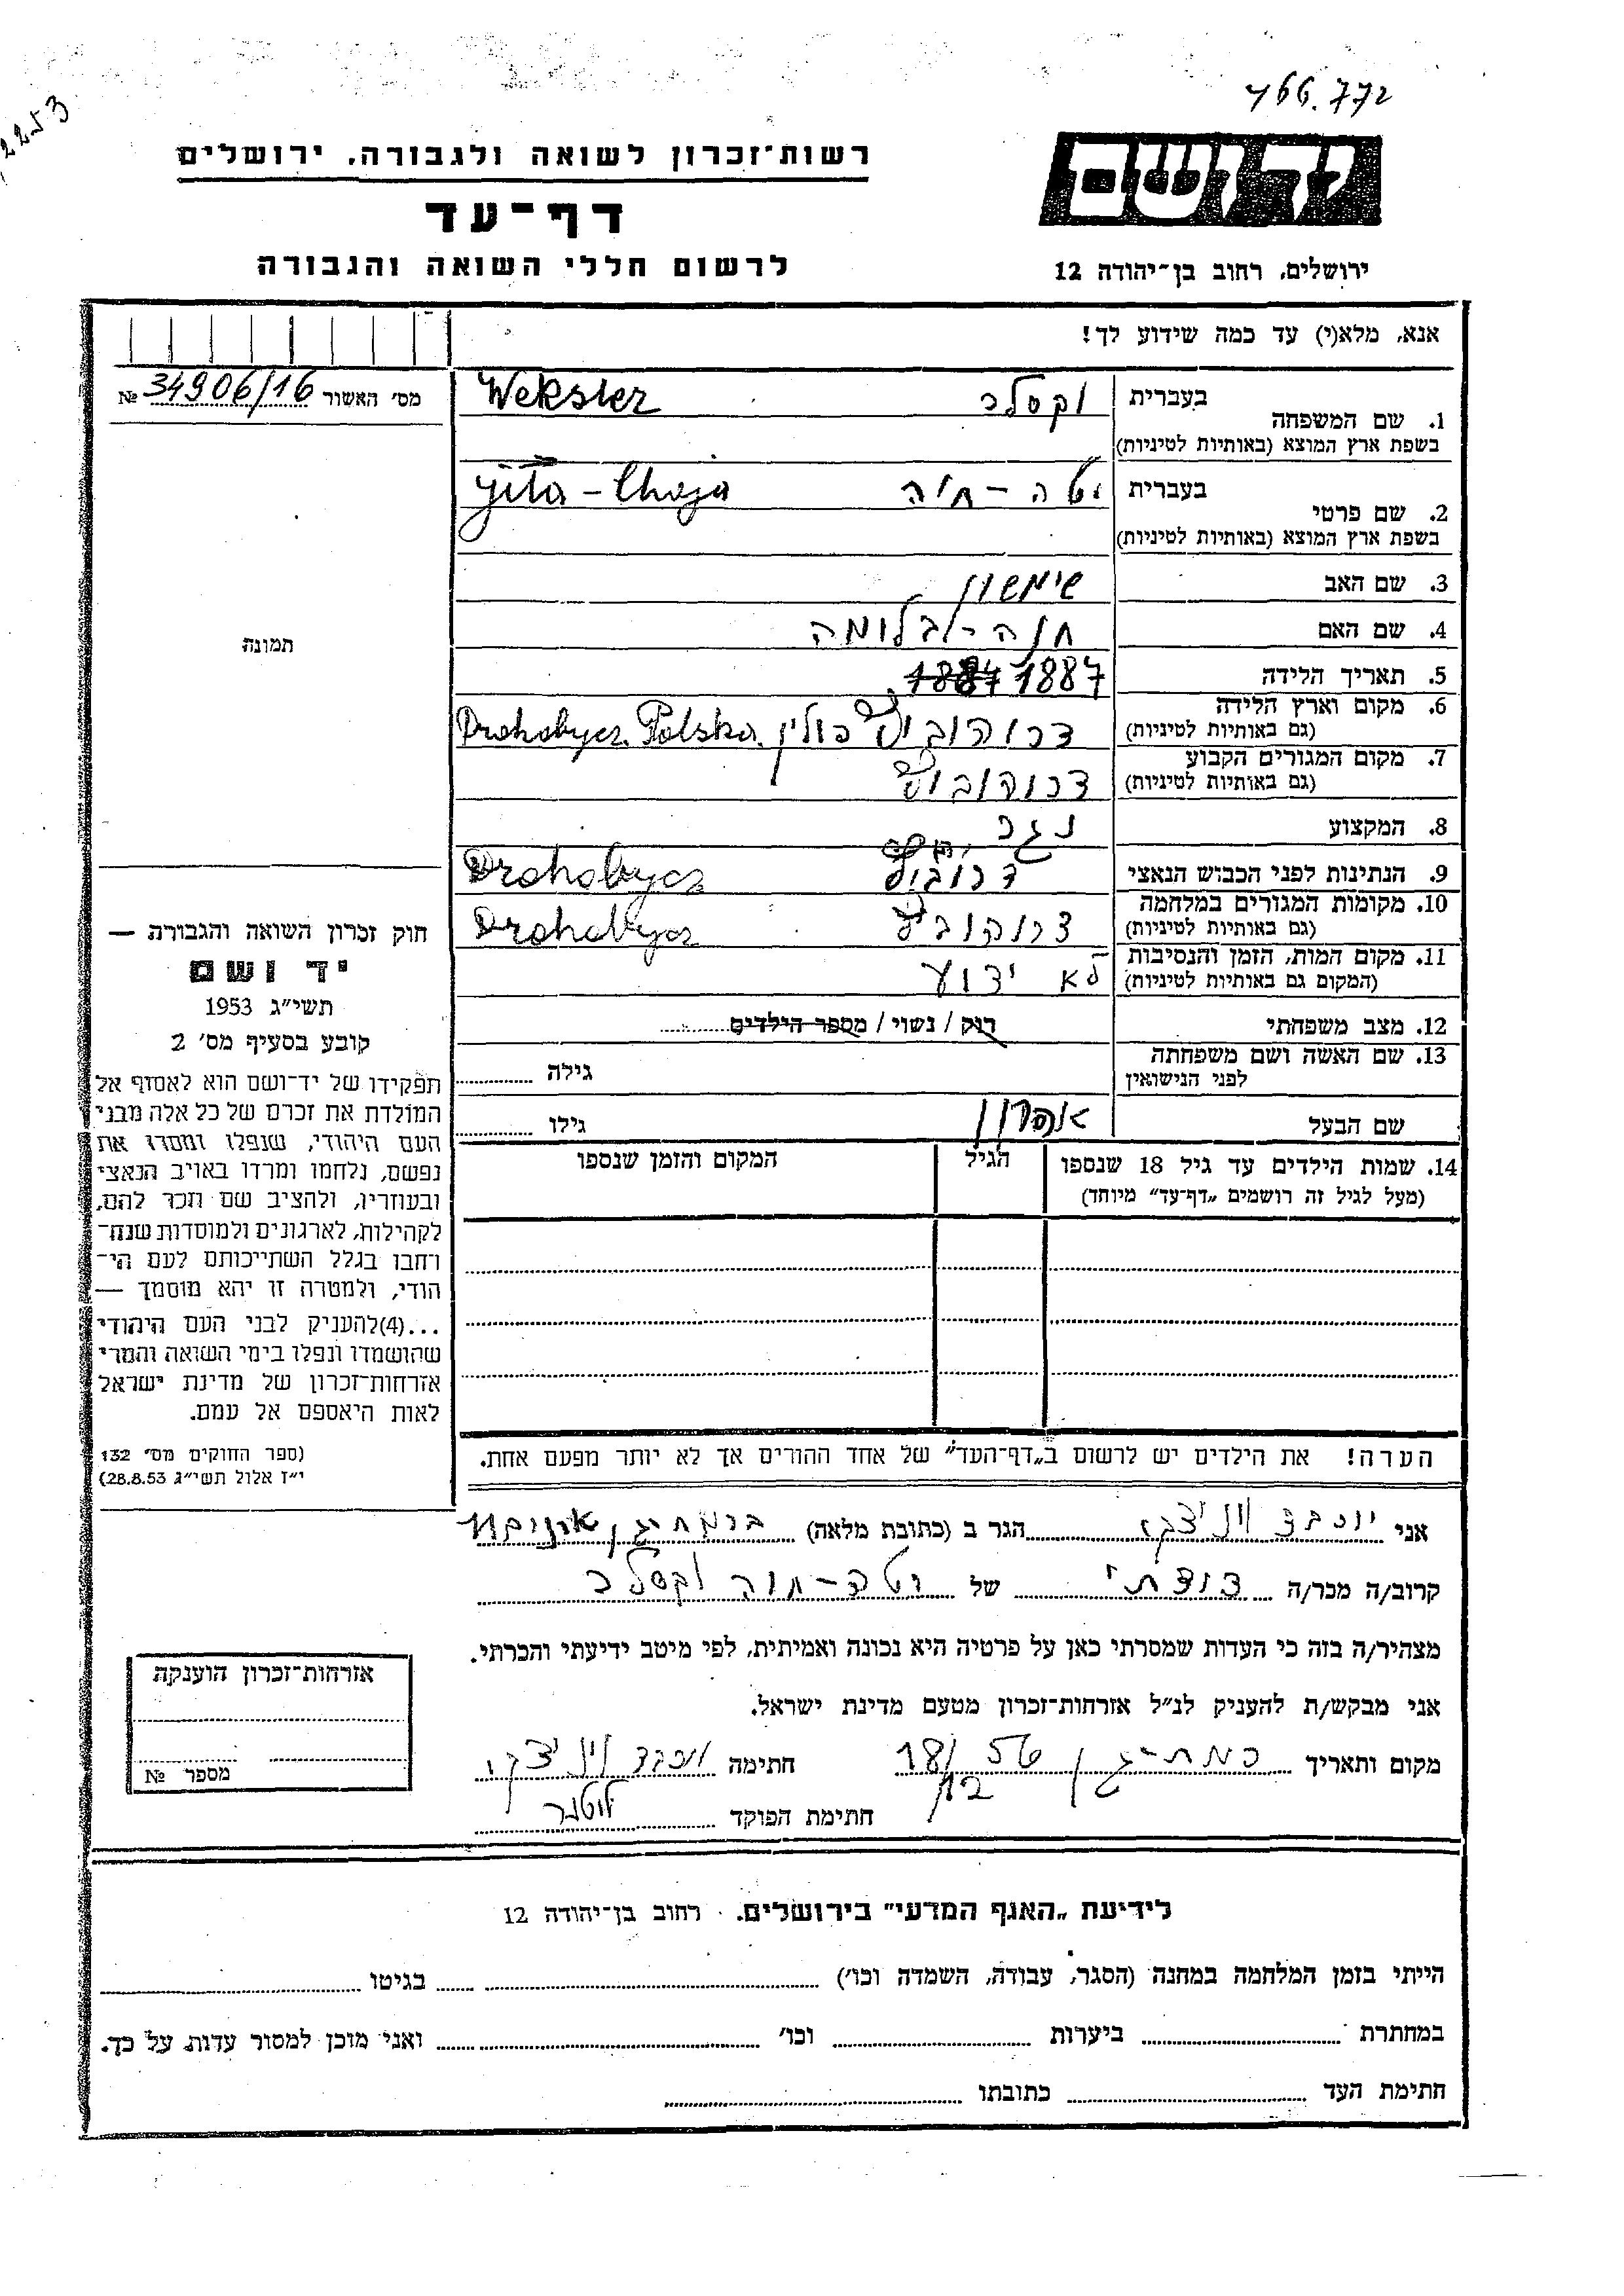 466.772
2253
רשות־זכרון לשואה ולגבורה, ירושלים
דף־עד
לרשום חללי השואה והגבורה
יד ושם
ירושלים, רחוב בן־יהודה 12
אנא, מלא(י) עד כמה שידוע לך!
מס׳ האשור № 34906/16
1. שם המשפחה בעברית וקסלר Weksler
בשפת ארץ המוצא (באותיות לטיניות)
2. שם פרטי בעברית יטה-חיה Jita-Chaja
בשפת ארץ המוצא (באותיות לטיניות)
3. שם האב שימשון
4. שם האם חנה-
5. תאריך הלידה 1887
6. מקום וארץ הלידה דרוהוביץ פולין Drohobycz Polska
(גם באותיות לטיניות)
7. מקום המגורים הקבוע דרוהוביץ
(גם באותיות לטיניות)
8. המקצוע נגר
9. הנתינות לפני הכבוש הנאצי Drohobycz
10. מקומות המגורים במלחמה דרוהוביץ Drohobycz
(גם באותיות לטיניות)
11. מקום המות, הזמן והנסיבות לא ידוע
(המקום גם באותיות לטיניות)
12. מצב משפחתי רוק / נשוי / מספר הילדים
13. שם האשה ושם משפחתה גילה
לפני הנישואין
שם הבעל אהרון גילו
14. שמות הילדים עד גיל 18 שנספו הגיל המקום והזמן שנספו
(מעל לגיל זה רושמים „דף־עד" מיוחד)
הערה! את הילדים יש לרשום ב„דף־העד" של אחד ההורים אך לא יותר מפעם אחת.
תמונה
חוק זכרון השואה והגבורה —
יד ושם
תשי״ג 1953
קובע בסעיף מס׳ 2
תפקידו של יד־ושם הוא לאסוף אל
המולדת את זכרם של כל אלה מבני
העם היהודי, שנפלו ומסרו את
נפשם, נלחמו ומרדו באויב הנאצי
ובעוזריו, ולהציב שם וזכר להם,
לקהילות, לארגונים ולמוסדות שנח־
רחבו בגלל השתייכותם לעם הי־
הודי, ולמטרה זו יהא מוסמך —
...(4)להעניק לבני העם היהודי
שהושמדו ונפלו בימי השואה והמרי
אזרחות־זכרון של מדינת ישראל
לאות היאספם אל עמם.
(ספר החוקים מס׳ 132
י״ז אלול תשי״ג 28.8.53)
אני יוכבד הגר ב (כתובת מלאה)
קרוב/ה מכר/ה דודתי של יטה-חיה וקסלר
מצהיר/ה בזה כי העדות שמסרתי כאן על פרטיה היא נכונה ואמיתית, לפי מיטב ידיעתי והכרתי.
אני מבקש/ת להעניק לנ״ל אזרחות־זכרון מטעם מדינת ישראל.
מקום ותאריך חתימה
חתימת הפוקד
אזרחות־זכרון הוענקה
מספר №
לידיעת „האגף המדעי" בירושלים. רחוב בן־יהודה 12
הייתי בזמן המלחמה במחנה (הסגר, עבודה, השמדה וכו׳) בגיטו
במחתרת ביערות וכו׳ ואני מוכן למסור עדות על כך.
חתימת העד כתובתו